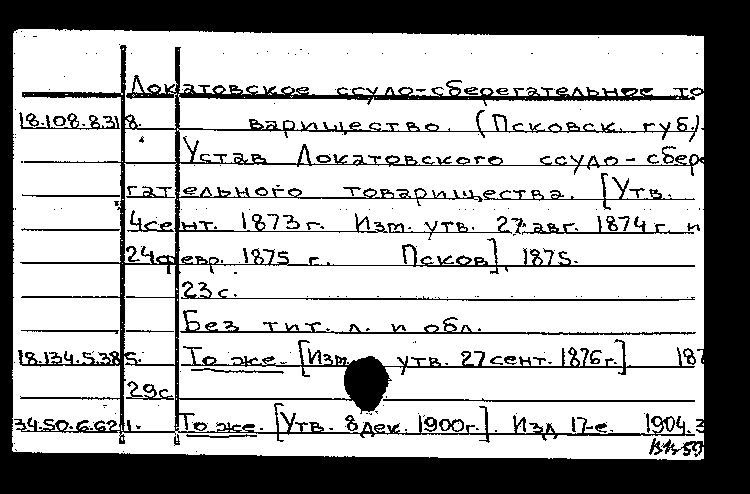 Локатовское ссудо-сберегательное то
18.108.8.318. варищество. (Псковск. губ.).
Устав Локатовского ссудо-сбере
гательного товарищества. [Утв.
4 сент. 1873 г. Изм. утв. 27 авг. 1874 г. и
24 февр. 1875 г. Псков], 1875.
23 с.
Без тит. л. и обл.
18.134.5.385. То же. [Изм. утв. 27 сент. 1876 г.]. 187
29 с
34.50.6.621. То же. [Утв. 8 дек. 1900 г.]. Изд 17-е. 1904. 3